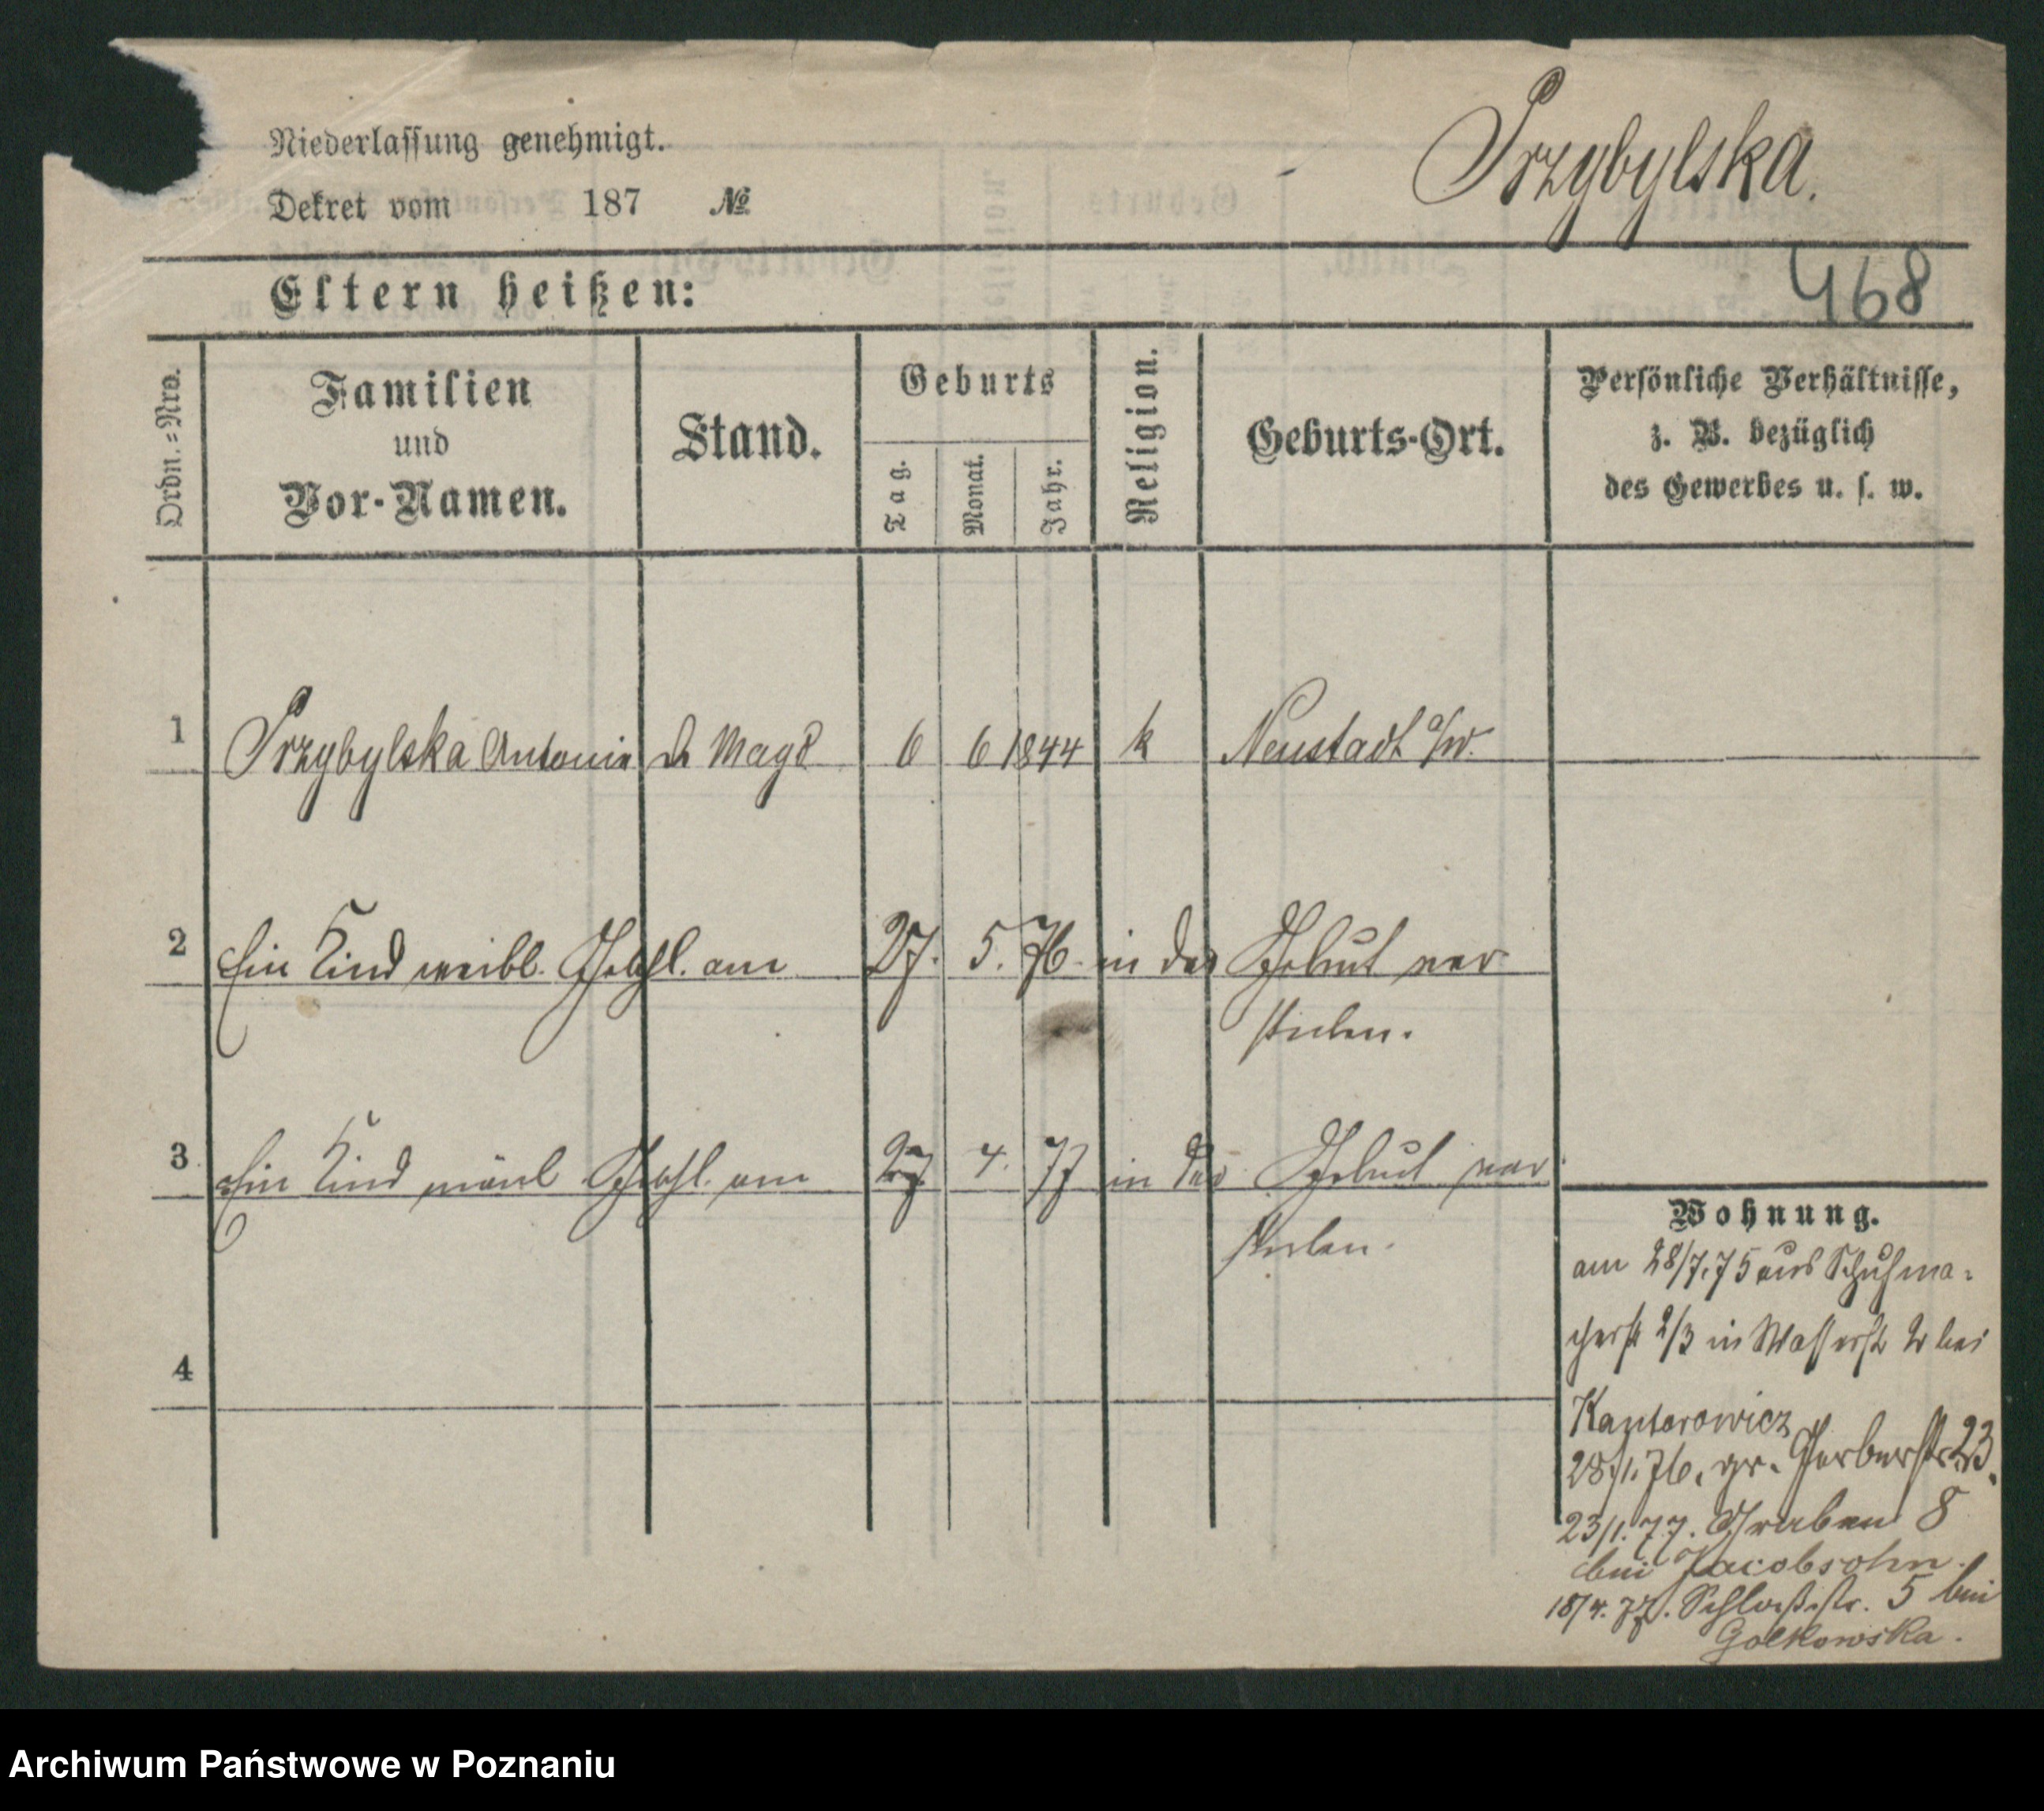 Niederlassung genehmigt.
Dekret vom 187 №
Przybylska.
468
Eltern heißen:
Ordn.=Nro.
Familien
und
Vor-Namen.
Stand.
Geburts
Tag.
Monat.
Jahr.
Religion.
Geburts-Ort.
Persönliche Verhältnisse,
z. B. bezüglich
des Gewerbes u. s. w.
1 Przybylska Antonie d Magd 6 6 1844 k Neustadt a/w.
2 Ein Kind weibl. Geschl. am 27. 5. 76. in der Gebut ver
storben.
3 Ein Kind mänl Geschl. am 27 4. 77 in der Gebut ver
storben.
4
Wohnung.
am 28/7.75 aus Schuhma-
cherst 2/3 in Wasserst 2 bei
Kantorowicz
28/1.76. gr. Gerberstr. 23.
23/1.77. Graben 8
bei Jacobsohn.
18/4.77. Schloßstr. 5 bei
Golkowska.
Archiwum Państwowe w Poznaniu